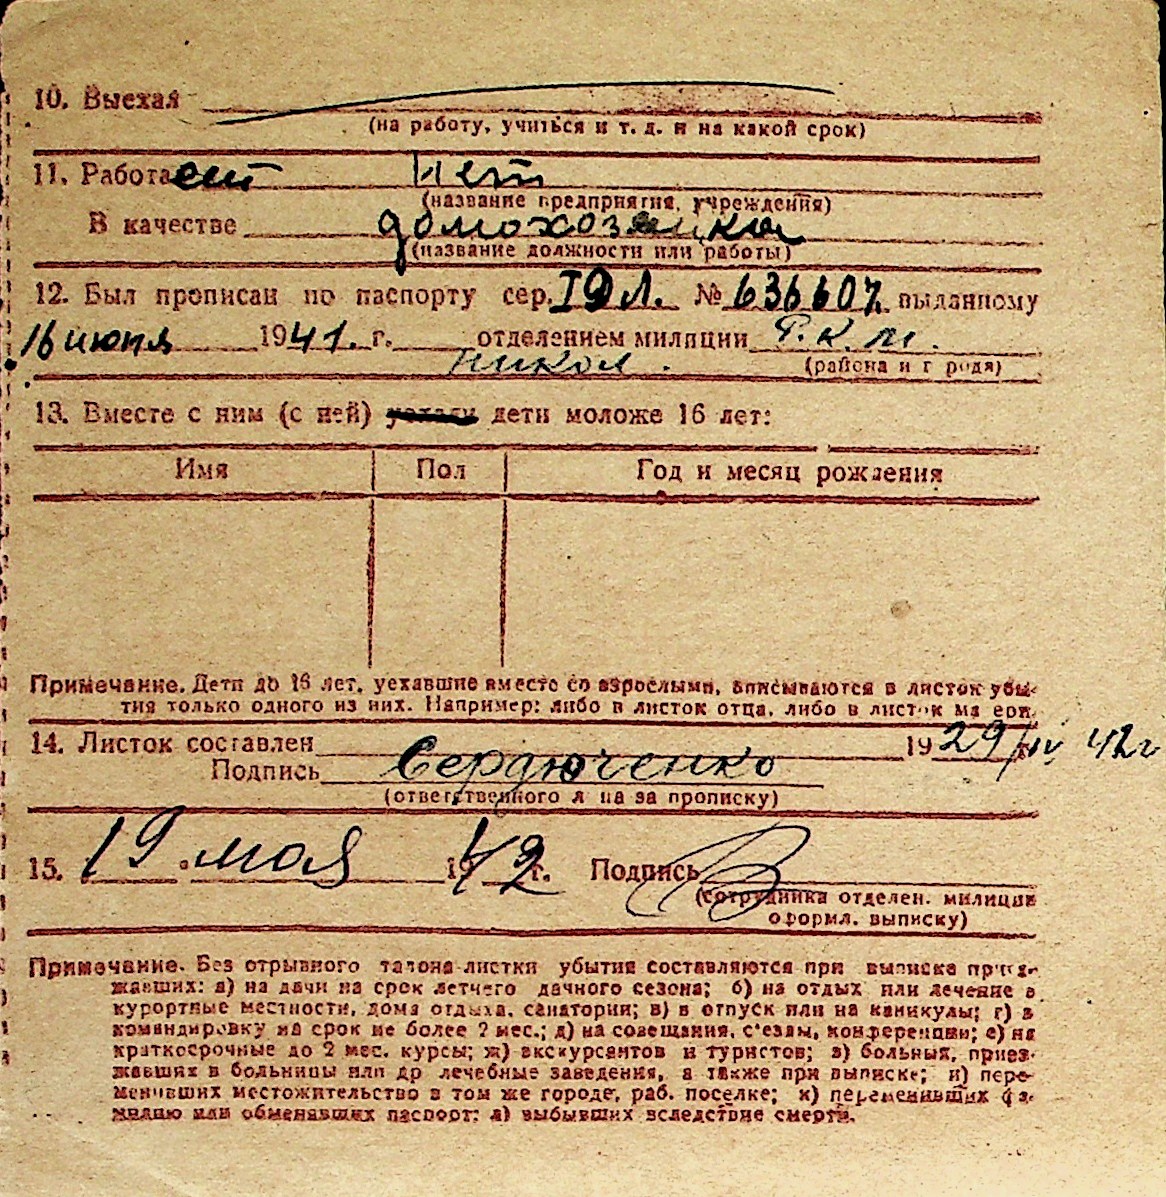 10. Выехал
(на работу, учиться и т. д. и на какой срок)
11. Работает нет
(название предприятия, учреждения)
В качестве домохозяйки
(название должности или работы)
12. Был прописан по паспорту сер. № 636607 выданному
16 июня 1941. г. отделением милиции Р.К.М.
никол.
(района и города)
13. Вместе с ним (с ней) дети моложе 16 лет:
Имя Пол Год и месяц рождения
Примечание. Дети до 16 лет, уехавшие вместе со взрослыми, вписываются в листок убы-
тия только одного из них. Например: либо в листок отца, либо в листок матери.
14. Листок составлен 19 29/IV 42 г
Подпись Сердюченко
(ответственного лица за прописку)
15. 19 мая 1942 г. Подпись
(сотрудника отделен. милиции
оформл. выписку)
Примечание. Без отрывного талона листки убытия составляются при выписке приез-
жавших: а) на дачи на срок летнего дачного сезона; б) на отдых или лечение в
курортные местности, дома отдыха, санатории; в) в отпуск или на каникулы; г) в
командировку на срок не более 2 мес.; д) на совещания, с'езды, конференции; е) на
краткосрочные до 2 мес. курсы; ж) экскурсантов и туристов; з) больных, приез-
жавших в больницы или др лечебные заведения, а также при выписке; и) пере-
менивших местожительство в том же городе, раб. поселке; к) переменивших фа-
милию или обменявших паспорт; л) выбывших вследствие смерти.